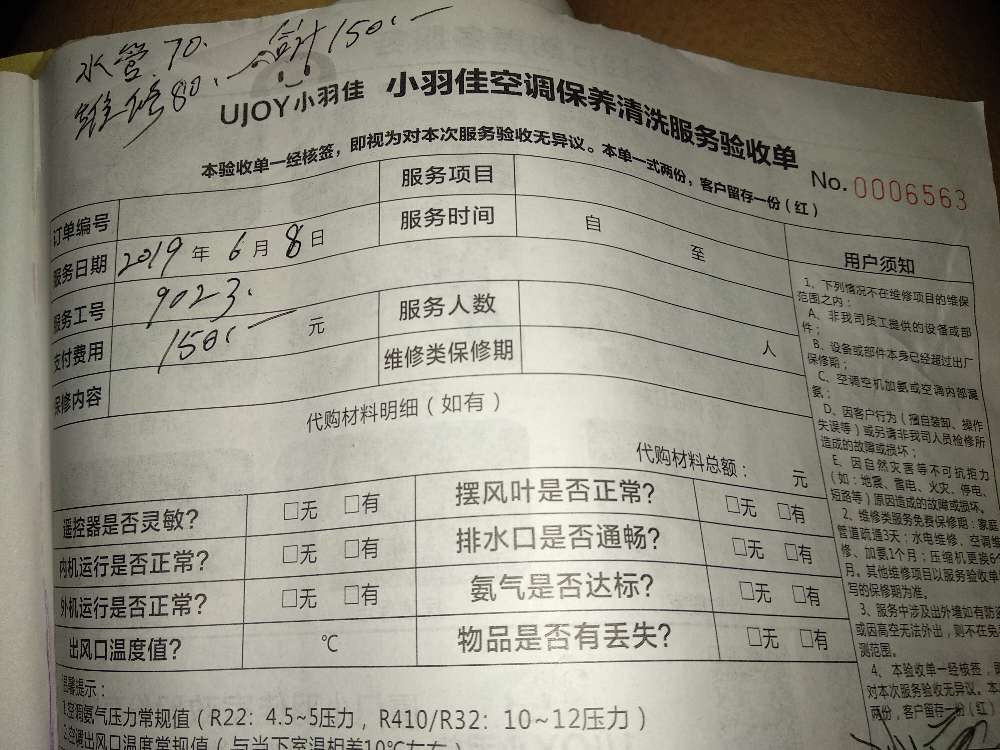 水管70. 合计150.一
维修80.
UJOY小羽佳 小羽佳空调保养清洗服务验收单
本验收单一经核签，即视为对本次服务验收无异议。本单一式两份，客户留存一份（红）
No. 0006563
订单编号 服务项目
服务日期 2019年6月8日 服务时间 自 至
服务工号 9023. 服务人数 人
支付费用 150.一 元 维修类保修期
保修内容
代购材料明细（如有）
代购材料总额： 元
遥控器是否灵敏? □无 □有 摆风叶是否正常? □无 □有
内机运行是否正常? □无 □有 排水口是否通畅? □无 □有
外机运行是否正常? □无 □有 氨气是否达标? □无 □有
出风口温度值? ℃ 物品是否有丢失? □无 □有
温馨提示：
1.空调氨气压力常规值（R22：4.5~5压力，R410/R32：10~12压力）
2.空调出风口温度常规值（与当下室温相差10℃左右）
用户须知
1、下列情况不在维修项目的维保
范围之内：
A、非我司员工提供的设备或部
件；
B、设备或部件本身已经超过出厂
保修期；
C、空调空机加氨或空调内部漏
氨；
D、因客户行为（擅自装卸、操作
失误等）或另请非我司人员检修所
造成的故障或损坏；
E、因自然灾害等不可抗拒力
（如：地震、雷电、火灾、停电、
短路等）原因造成的故障或损坏。
2、维修类服务免费保修期：家庭
管道疏通3天；水电维修、空调维
修、加氨1个月；压缩机更换6个
月。其他维修项目以服务验收单
写的保修期为准。
3、服务中涉及出外墙如有防盗
或因高空无法外出，则不在免
测范围。
4、本验收单一经核签，即
对本次服务验收无异议。本
两份，客户留存一份（红）